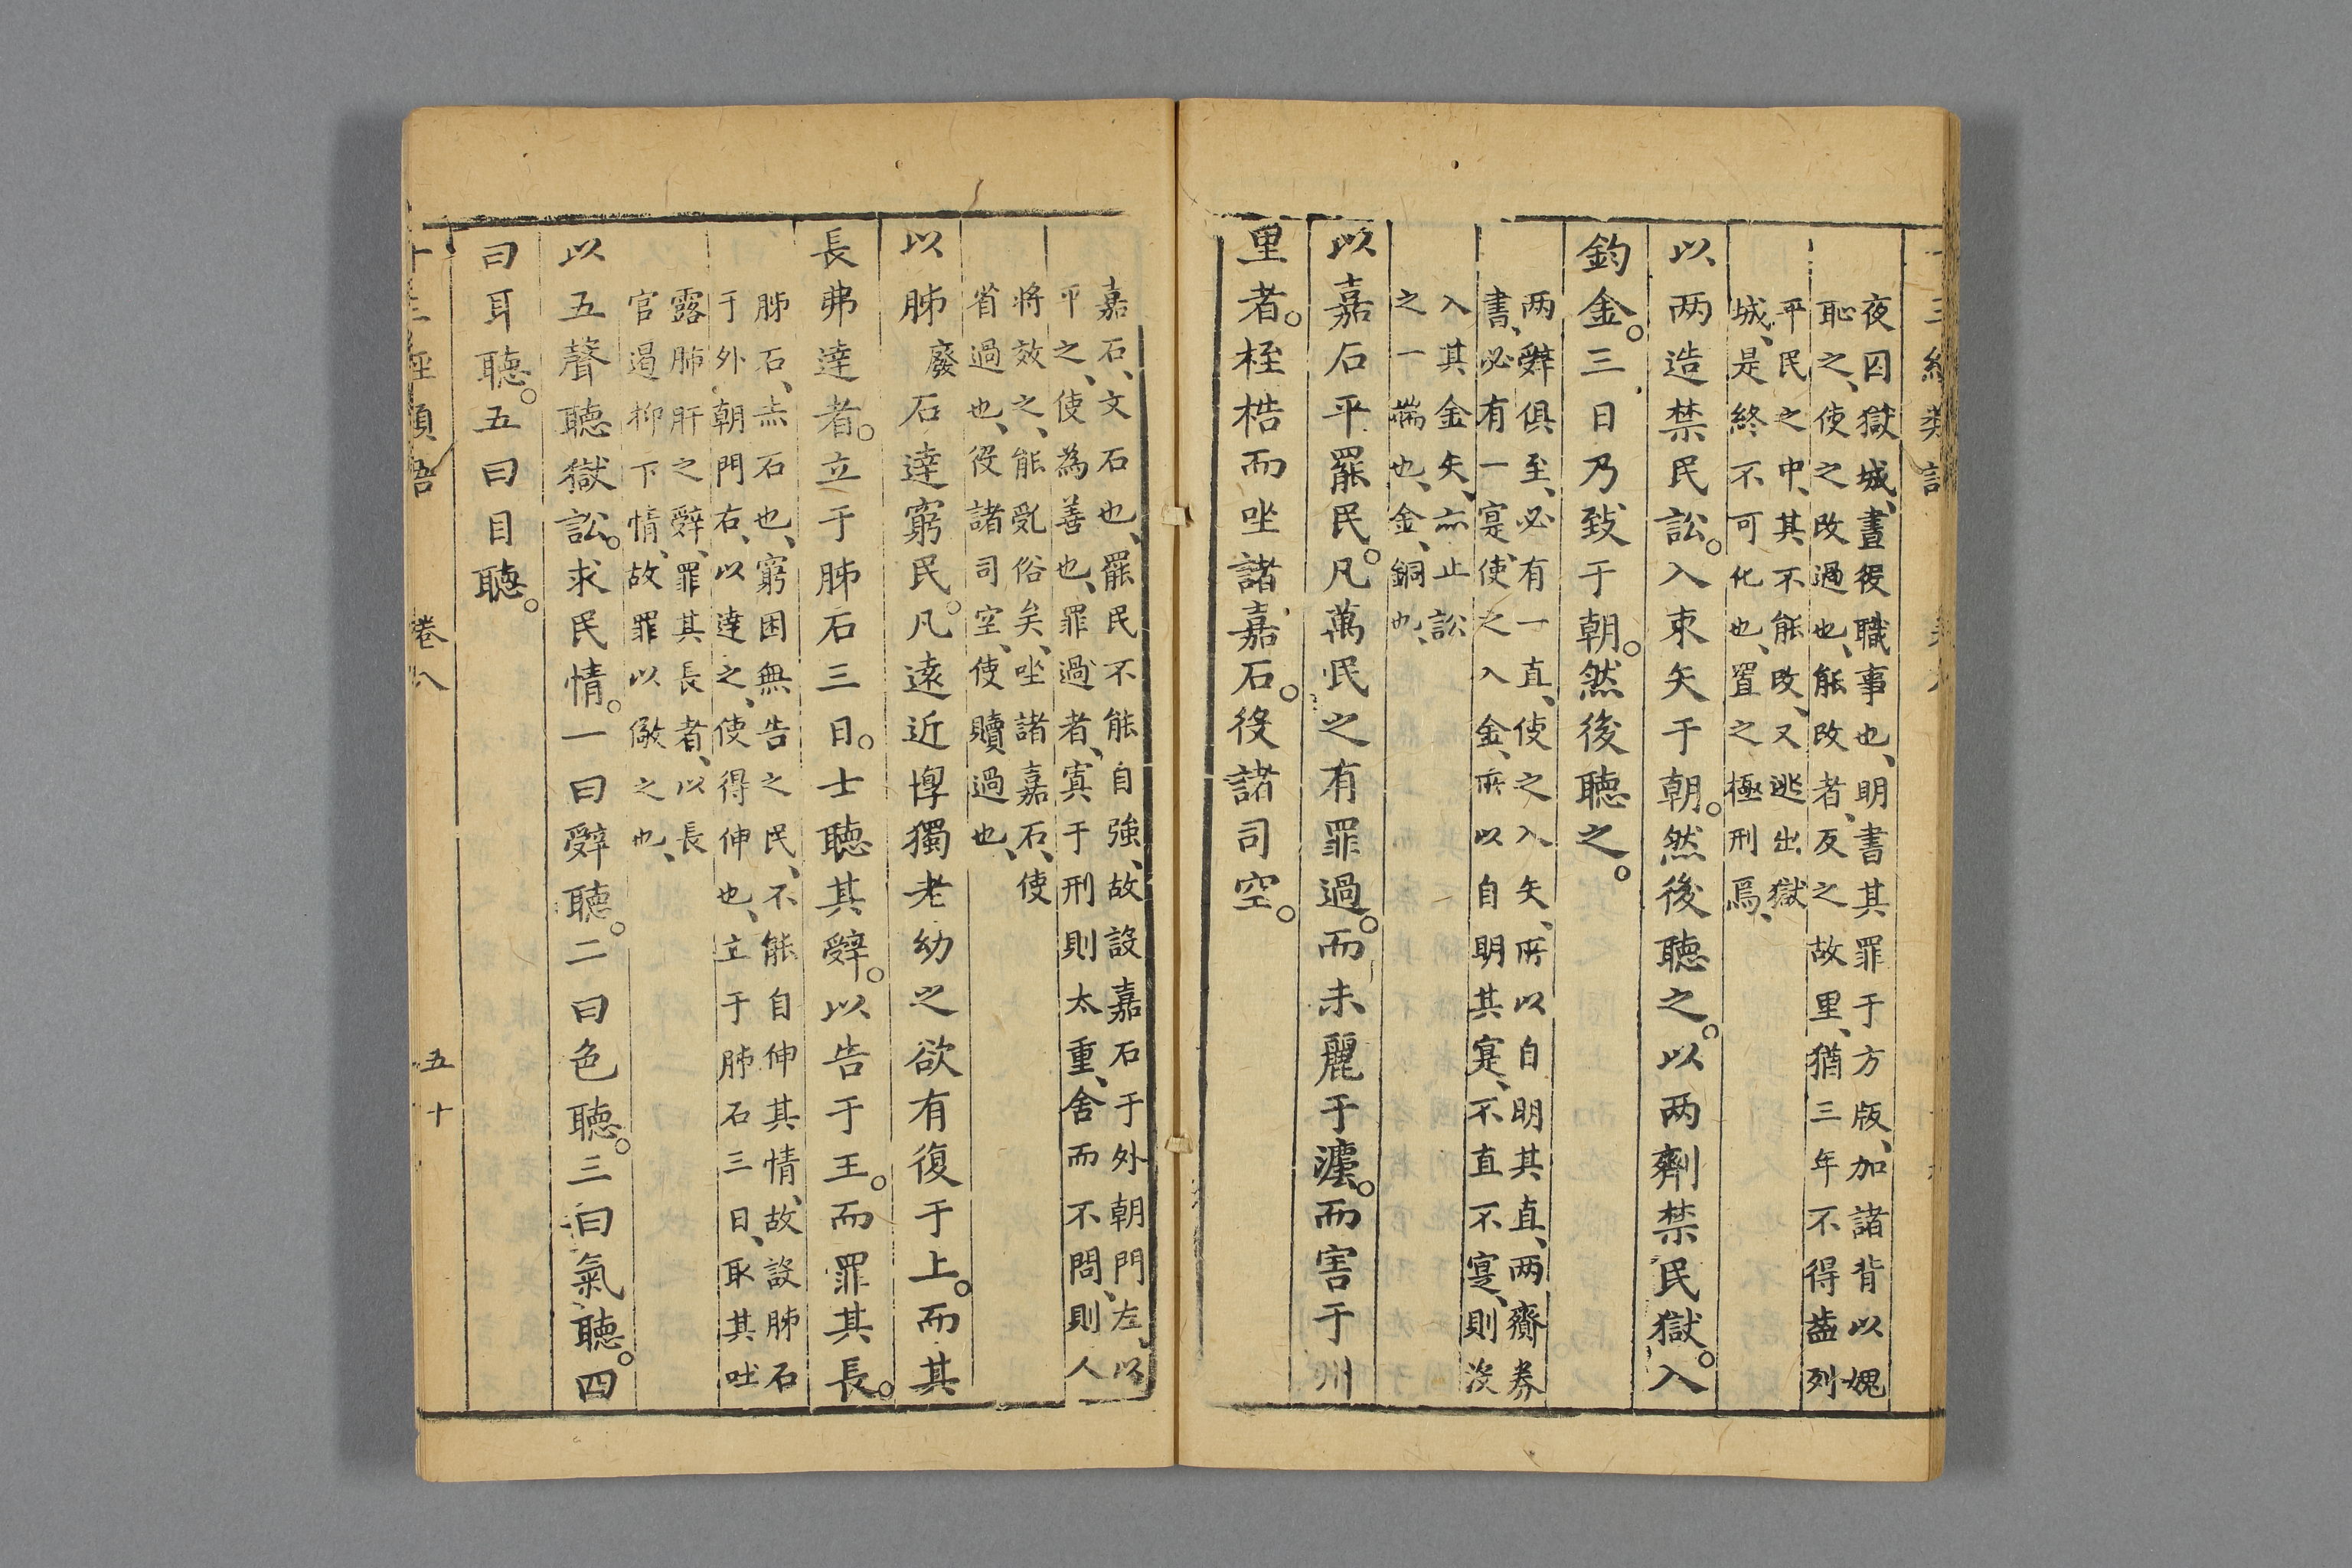 夜囚獄城、晝役職事也、明書其罪于方版、加諸背以媿
恥之、使之改過也、能改者、反之故里、猶三年不得齒列
平民之中、其不能改、又逃出獄
城、是終不可化也、置之極刑焉、
以两造禁民訟。入束矢于朝。然後聽之。以两劑禁民獄。入
鈞金。三日乃致于朝。然後聽之。
两辭俱至、必有一直、使之入矢、所以自明其直、两齎券
書、必有一寔、使之入金、所以自明其寔、不直不寔、則沒
入其金矢、亦止訟
之一端也、金、銅也、
以嘉石平罷民。凡萬民之有罪過。而未麗于灋。而害于州
里者。桎梏而坐諸嘉石。役諸司空。
嘉石、文石也、罷民不能自強、故設嘉石于外朝門左、以
平之、使為善也、罪過者、寘于刑則太重、舍而不問、則人
将效之、能乱俗矣、坐諸嘉石、使
省過也、役諸司空、使贖過也、
以肺廢石達窮民。凡遠近惸獨老幼之欲有復于上。而其
長弗達者。立于肺石三日。士聽其辭。以告于王。而罪其長。
肺石、赤石也、窮困無告之民、不能自伸其情、故設肺石
于外朝門右、以達之、使得伸也、立于肺石三日、取其吐
露肺肝之辭、罪其長者、以長
官遏抑下情、故罪以儆之也、
以五聲聽獄訟。求民情。一曰辭聽。二曰色聽。三曰氣聽。四
曰耳聽。五曰目聽。
卷八 五十